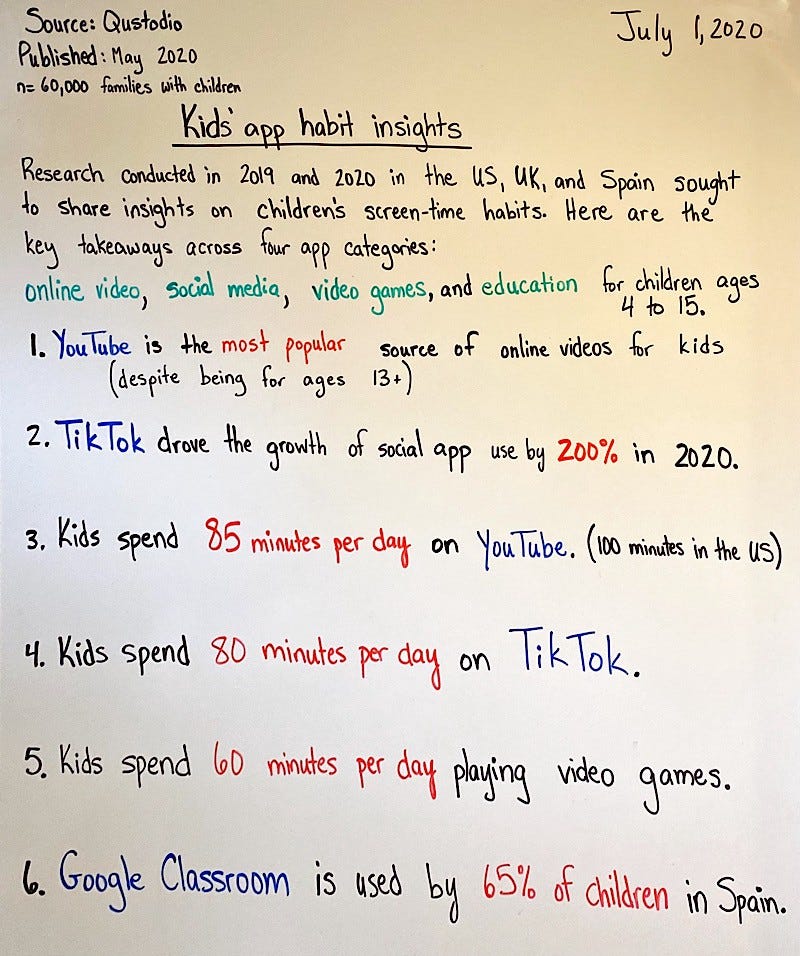 Source: Qustodio
July 1, 2020
Published: May 2020
n= 60,000 families with children
Kids' app habit insights
Research conducted in 2019 and 2020 in the US, UK, and Spain sought
to share insights on children's screen-time habits. Here are the
key takeaways across four app categories:
online video, social media, video games, and education for children ages
4 to 15.
1. YouTube is the most popular source of online videos for kids
(despite being for ages 13+)
2. TikTok drove the growth of social app use by 200% in 2020.
3. Kids spend 85 minutes per day on YouTube. (100 minutes in the US)
4. Kids spend 80 minutes per day on TikTok.
5. Kids spend 60 minutes per day playing video games.
6. Google Classroom is used by 65% of children in Spain.